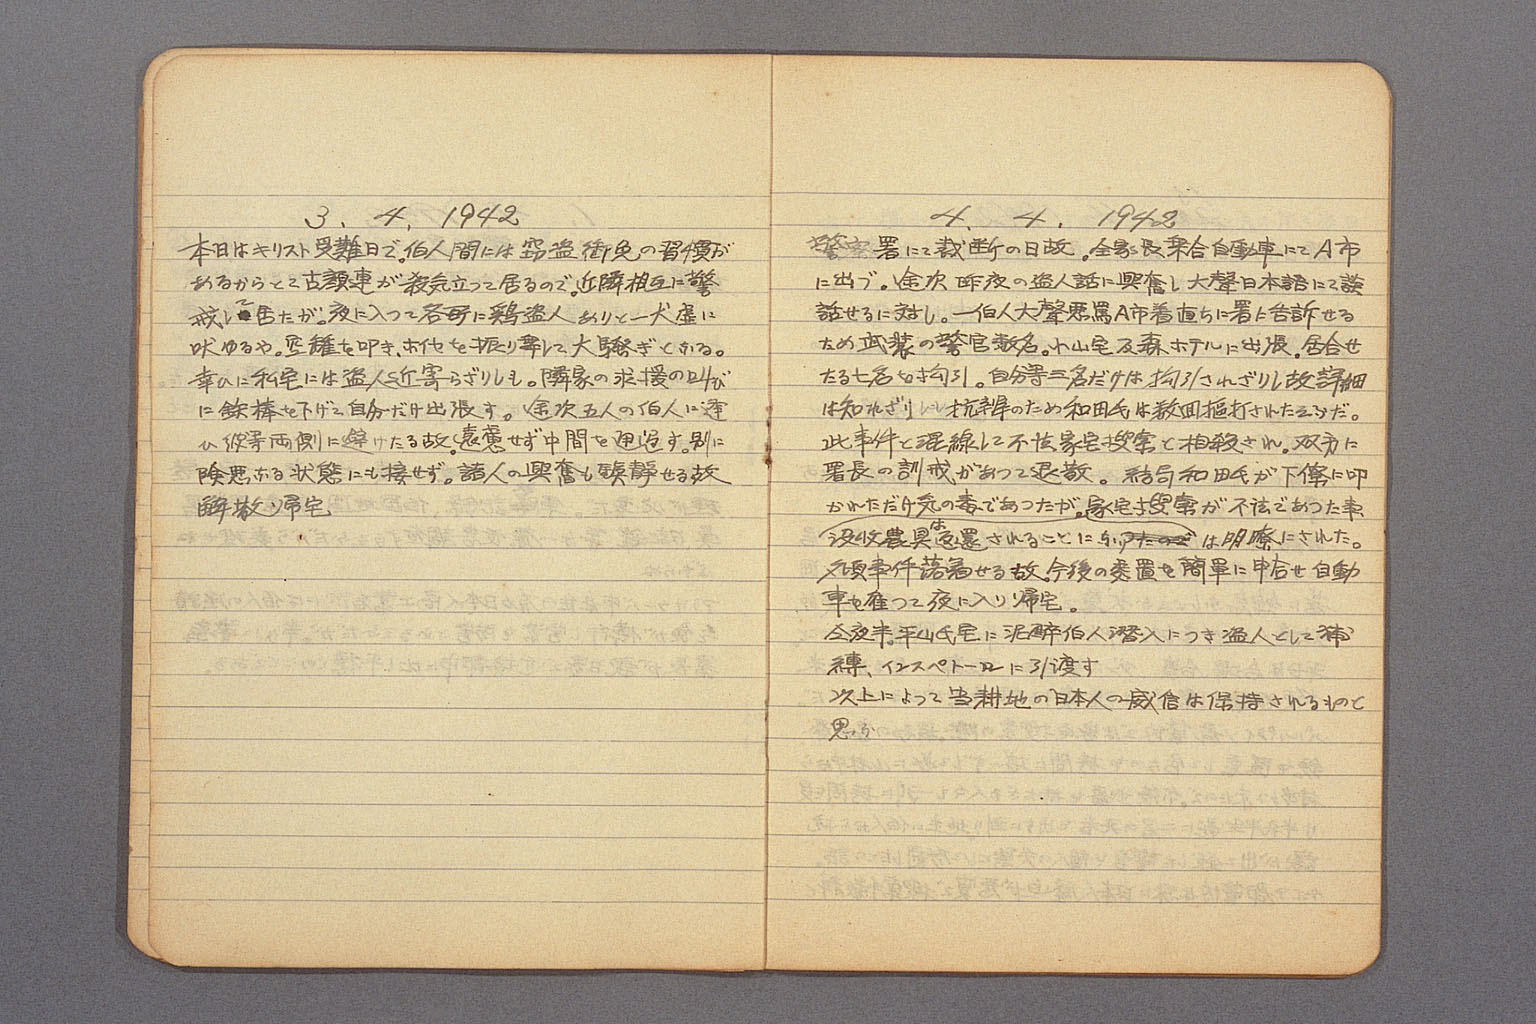 3. 4. 1942
本日はキリスト受難日で。伯人間には窃盗御免の習慣が
あるからとて古顔連が殺気立って居るので。近隣相互に警
戒して居たが。夜に入って各所に鶏盗人ありと一犬虚に
吠ゆるや。空鑵を叩き、ホイセを振り翳して大騒ぎとなる。
幸ひに私宅には盗人近寄らざりしも。隣家の求援の叫び
に鉄棒を下げて自分だけ出張す。途次五人の伯人に逢
ひ彼等両側に避けたる故。遠慮せず中間を通過す。別に
険悪なる状態にも接せず。諸人の興奮も鎮静せる故
解散帰宅
4. 4. 1942
警察署にて裁断の日故。全家長乗合自動車にてA市
に出づ。途次昨夜の盗人話に興奮し大聲日本語にて談
話せるに対し。一伯人大聲悪罵A市着直ちに署に告訴せる
ため武装の警官数名。小山宅及森ホテルに出張。居合せ
たる七名を拘引。自分等三名だけは拘引されざりし故詳細
は知れざりしも 抗辯のため和田氏は数回擲打されたそうだ。
此事件と混線して不法家宅捜索と相殺され。双方に
署長の訓戒があって退散。結局和田氏が下僚に叩
かれただけ気の毒であったが。家宅捜索が不法であった事
没収農具は返還されることに は明瞭にされた。
事件落着せる故。今後の処置を簡単に申合せ自動
車を雇って夜に入り帰宅。
今夜半。平山氏宅に泥酔伯人潜入につき盗人として捕
縛、インスペトールに引渡す
以上によって当耕地の日本人の威信は保持されるものと
思ふ